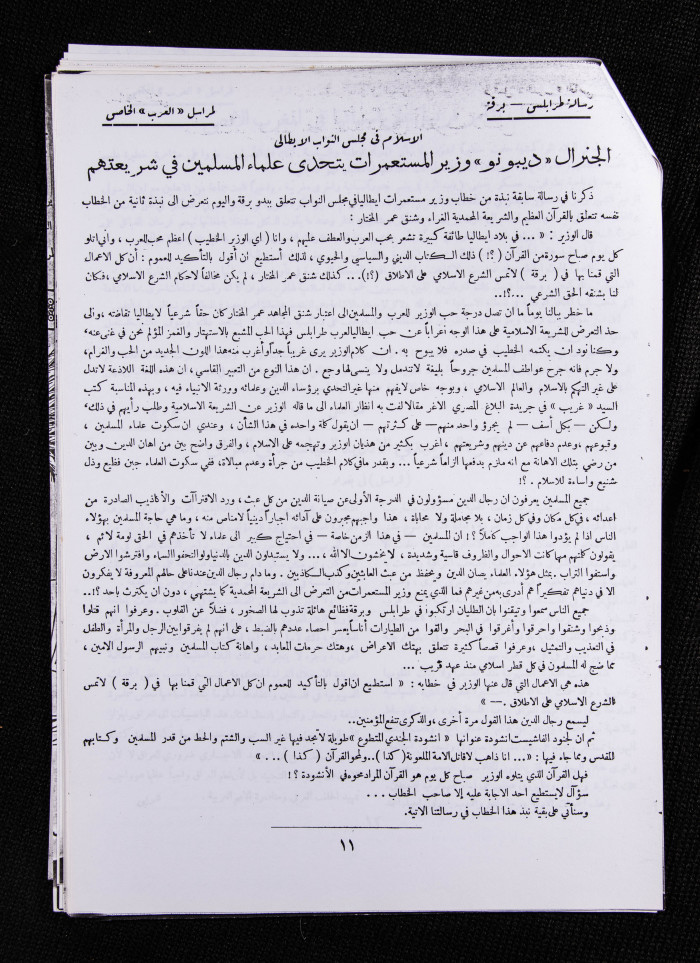 رسالة طرابلس — برقة
لمراسل « العرب » الخاص
الاسلام في مجلس النواب الايطالي
الجنرال « ديبونو » وزير المستعمرات يتحدى علماء المسلمين في شريعتهم
ذكرنا في رسالة سابقة نبذة من خطاب وزير مستعمرات ايطاليا في مجلس النواب تتعلق ببدو برقة واليوم نتعرض الى نبذة ثانية من الخطاب
نفسه تتعلق بالقرآن العظيم والشريعة المحمدية الغراء وشنق عمر المختار :
قال الوزير : « ... في بلاد ايطاليا طائفة كبيرة تشعر بحب العرب والعطف عليهم ، وانا ( اي الوزير الخطيب ) اعظم محب للعرب ، واني اتلو
كل يوم صباح سورة من القرآن ( ؟! ) ذلك الكتاب الديني والسياسي والحيوي ، لذلك أستطيع ان أقول بالتأكيد للعموم : ان كل الاعمال
التي قمنا بها في ( برقة ) لاتمس الشرع الاسلامي على الاطلاق (؟!) ... كذلك شنق عمر المختار ، لم يكن مخالفاً لاحكام الشرع الاسلامي ، فكان
لنا بشنقه الحق الشرعي ...؟!..
ما خطر ببالنا يوماً ما ان تصل درجة حب الوزير للعرب والمسلمين الى اعتبار شنق المجاهد عمر المختار كان حقاً شرعياً لايطاليا تقاضته ، والى
حد التعرض للشريعة الاسلامية على هذا الوجه اعراباً عن حب ايطاليا لعرب طرابلس فهذا الحب المشبع بالاستهتار والغمز المؤلم نحن في غنى عنه ،
وكنا نود ان يكتمه الخطيب في صدره فلا يبوح به . ان كلام الوزير يرى غريباً جداً وأغرب منه هذا اللون الجديد من الحب والغرام ،
ولا جرم فانه جرح عواطف المسلمين جروحاً بليغة لاتندمل ولا ينسى لها وجع . ان هذا النوع من التعبير القاسي ، ان هذه اللغة اللاذعة لاتدل
على غير التهكم بالاسلام والعالم الاسلامي ، وبوجه خاص لايفهم منها غير التحدي برؤساء الدين وعلمائه وورثة الانبياء فيه ، وبهذه المناسبة كتب
السيد « غريب » في جريدة البلاغ المصري الاغر مقالا لفت به انظار العلماء الى ما قاله الوزير عن الشريعة الاسلامية وطلب رأيهم في ذلك ،
ولكن — بكل أسف — لم يجرؤ واحد منهم — على كثرتهم — ان يقول كلمة واحدة في هذا الشأن ، وعندي ان سكوت علماء المسلمين ،
وقبوعهم ، وعدم دفاعهم عن دينهم وشريعتهم ، اغرب بكثير من هذيان الوزير وتهجمه على الاسلام ، والفرق واضح بين من اهان الدين وبين
من رضي بتلك الاهانة مع انه ملزم بدفعها الزاماً شرعياً ... وبقدر مافي كلام الخطيب من جرأة وعدم مبالاة ، ففي سكوت العلماء جبن فظيع وذل
شنيع واساءة للاسلام . ؟!
جميع المسلمين يعرفون ان رجال الدين مسؤولون في الدرجة الأولى عن صيانة الدين من كل عبث ، ورد الافتراآت والأكاذيب الصادرة من
اعدائه ، في كل مكان وفي كل زمان ، بلا مجاملة ولا محاباة ، هذا واجبهم مجبرون على أدائه اجباراً دينياً لامناص منه ، وما هي حاجة المسلمين بهؤلاء
الناس اذا لم يؤدوا هذا الواجب كاملا ؟! ان المسلمين — في هذا الزمن خاصة — في احتياج كبير الى علماء لا تأخذهم في الحق لومة لائم ،
يقولون كلمتهم مهما كانت الاحوال والظروف قاسية وشديدة ، لا يخشون الا الله ، ... ولا يستبدلون الدين بالدنيا ولو التحفوا السماء وافترشوا الارض
واستفوا التراب . بمثل هؤلاء العلماء يصان الدين ويحفظ من عبث العابثين وكذب الكذابين . وما دام رجال الدين عندنا على حالهم المعروفة لا يفكرون
الا في دنياهم تفكيراً هم أدرى به من غيرهم فما الذي يمنع وزير المستعمرات من التعرض الى الشريعة المحمدية كما يشتهي ، دون ان يكترث باحد ؟!..
جميع الناس سمعوا وتيقنوا بان الطليان ارتكبوا في طرابلس وبرقة فظائع هائلة تذوب لها الصخور ، فضلاً عن القلوب . وعرفوا انهم قتلوا
وذبحوا وشنقوا واحرقوا وأغرقوا في البحر والقوا من الطيارات أناساً يعسر احصاء عددهم بالضبط ، على انهم لم يفرقوا بين الرجل والمرأة والطفل
في التعذيب والتمثيل ، وعرفوا قصصاً كثيرة تتعلق بهتك الاعراض ، وهتك حرمات المعابد ، واهانة كتاب المسلمين ونبيهم الرسول الامين ،
مما ضج له المسلمون في كل قطر اسلامي منذ عهد قريب ...
هذه هي الاعمال التي قال عنها الوزير في خطابه : « استطيع ان اقول بالتأكيد للعموم ان كل الاعمال التي قمنا بها في ( برقة ) لاتمس
الشرع الاسلامي على الاطلاق . — »
ليسمع رجال الدين هذا القول مرة أخرى ، والذكرى تنفع المؤمنين ..
ثم ان لجنود الفاشيست انشودة عنوانها « انشودة الجندي المتطوع » طويلة لانجد فيها غير السب والشتم والحط من قدر المسلمين وكتابهم
المقدس ومما جاء فيها : « ... انا ذاهب لاقاتل الامة الملعونة ( كذا ) .. ولمحو القرآن ( كذا ) ... »
فهل القرآن الذي يتلوه الوزير صباح كل يوم هو القرآن المراد محوه في الأنشودة ؟!
سؤال لايستطيع احد الاجابة عليه إلا صاحب الخطاب ...
وسنأتي على بقية نبذ هذا الخطاب في رسالتنا الاتية .
١١